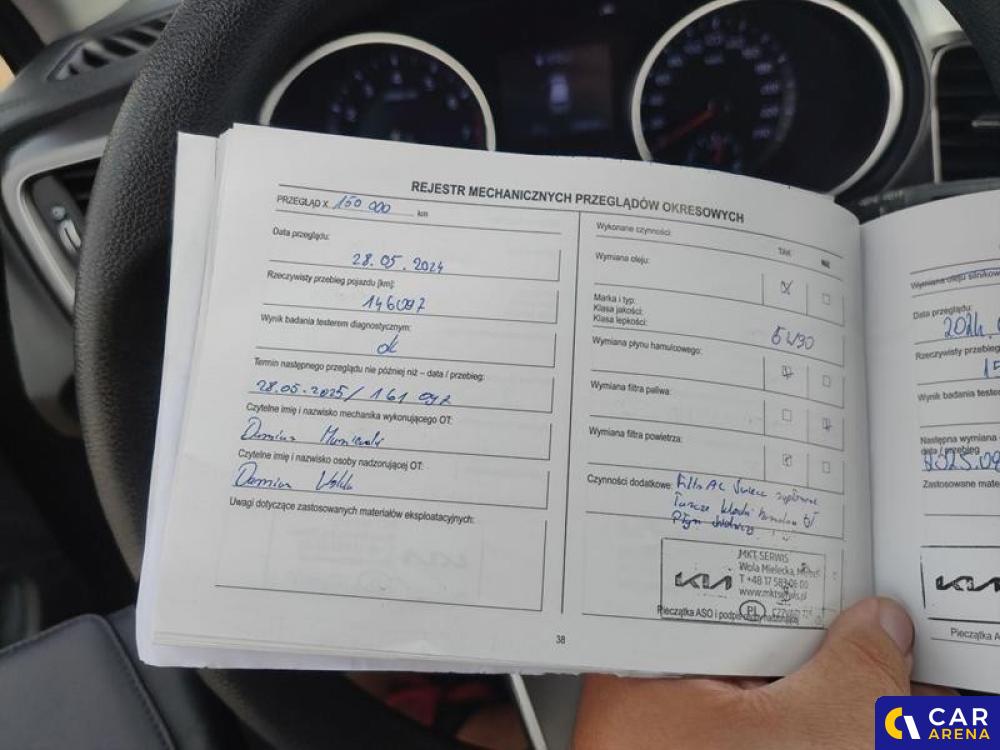 REJESTR MECHANICZNYCH PRZEGLĄDÓW OKRESOWYCH
PRZEGLĄD X 150 000 km
Data przeglądu:
28.05.2024
Rzeczywisty przebieg pojazdu [km]:
146092
Wynik badania testerem diagnostycznym:
ok
Termin następnego przeglądu nie później niż – data / przebieg:
28.05.2025/ 161 092
Czytelne imię i nazwisko mechanika wykonującego OT:
Damian
Czytelne imię i nazwisko osoby nadzorującej OT:
Damian
Uwagi dotyczące zastosowanych materiałów eksploatacyjnych:
Wykonane czynności:
TAK NIE
Wymiana oleju:
Marka i typ:
Klasa jakości:
Klasa lepkości:
5W30
Wymiana płynu hamulcowego:
Wymiana filtra paliwa:
Wymiana filtra powietrza:
Czynności dodatkowe: Filtr AC Świece zapłonowe
Tarcze klocki hamulcowe tył
Płyn
KIA
MKT SERWIS
Wola Mielecka
T +48 17 583 06 00
www.mktserwis.pl
PL
Pieczątka ASO i podpis osoby nadzorującej
38
Wymiana oleju silnikow
Data przeglądu:
2024.0
Rzeczywisty przebieg
15
Wynik badania
Następna wymiana
data / przebieg
2025.09
Zastosowane mate
KIA
Pieczątka A
CAR
ARENA